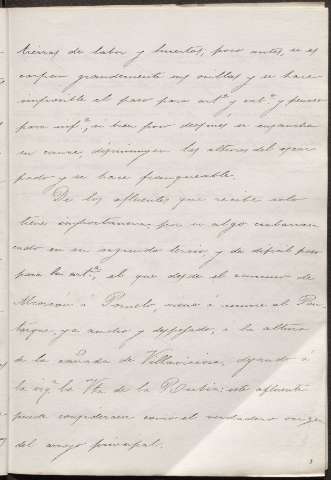 tierras de labor y huertos, poco antes, se es
carpan grandemente sus orillas y se hace
imposible el paso para artª y cabª y penoso
para infª, si bien poco después se ensancha
su cauce, disminuyen las alturas del escar
pado y se hace franqueable.
De los afluentes que recibe solo
tiene importancia por ir algo embarran
cado en su segundo tercio, y de dificil paso
para la artª, el que desde el camino de
á Pozuelo, viene á reunirse al
, ya ancho y despejado, á la altura
de la cañada de Villaviciosa, dejando á
la izqª la Vta de la Rubia: este afluente
puede considerarse como el verdadero origen
del arroyo principal.